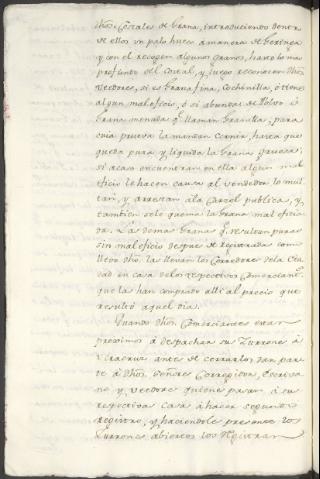 dhos. Costales de Grana, introduciendo dentro
de ellos un palo hueco amanera de Geringa
y con el recogen algunos granos, hasta lo mas
profundo del Costal, y luego reconocen dhos.
Veedores, si es Grana fina, Cochinilla, ó tiene
algun maleficio, ó si abunda de Polvo ó
Grana menuda q. llaman Granilla; para
cuia prueva la mandan Cernir, hasta que
queda pura, y liquida la Grana gruesa:
si acaso encuentran en ella algun mal
eficio le hacen causa al vendedor lo mul
tan, y arrestan ala Carcel publica, y
tambien se le quema la Grana mal eficia
da. Las demas Granas q. resultan puras
sin maleficio despues de registradas como
dhos. la llevan los Corredores de la Ciu
dad en casa de los respectivos Comerciantes
que la han comprado alli al precio que
resultó aquel dia.
Quando dhos. Comerciantes estan
proximos á despachar su Zurrones á
Veracruz antes de cerrarlos dan par
te á dhos. Señores Corregidor, Escriva
no y Veedores quienes pasan á su
respectiva Casa á hacer segundo
registro, y haciendole presente los
Zurrones abiertos los registran